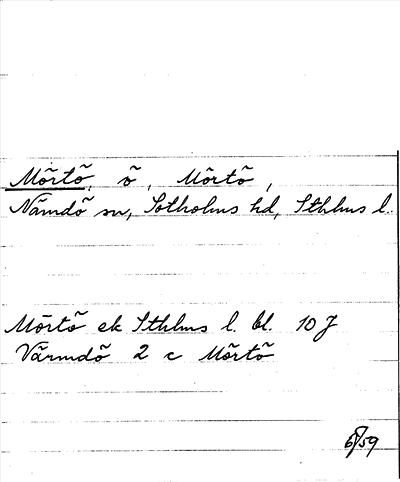 Mörtö, ö, Mörtö,
Nämdö sn, Sotholms hd, Sthlms l.
Mörtö ek Sthlms l. bl. 10 J
Värmdö 2 c Mörtö